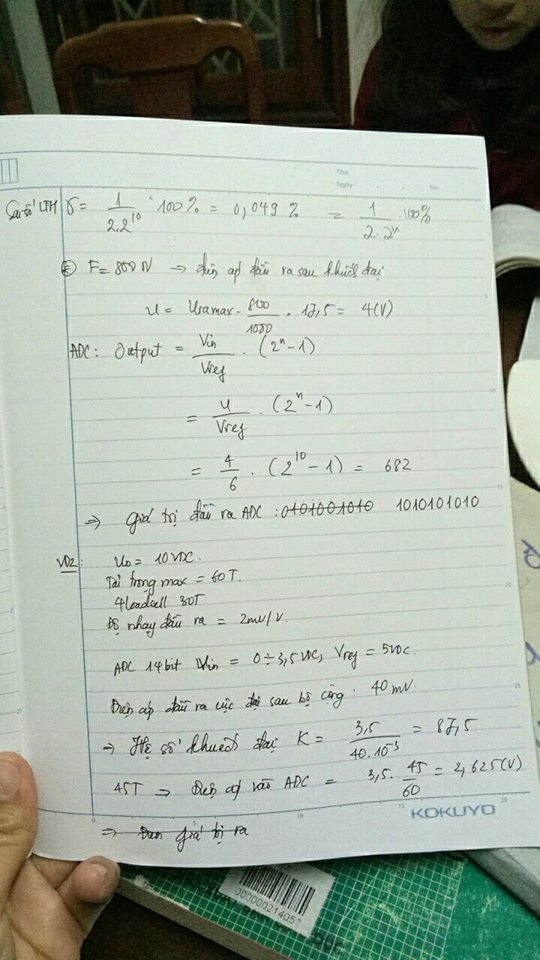 Thứ
Ngày
No.
Sai số LTH γ = 1/(2.2^10) . 100% = 0,049 % = 1/(2.2^n) . 100%
F = 800 N ⇒ điện áp đầu ra sau khuếch đại
U = Uramax . 800/1000 . 17,5 = 4(V)
ADC: Output = Vin/Vref . (2^n - 1)
= U/Vref . (2^n - 1)
= 4/6 . (2^10 - 1) = 682
⇒ Giá trị đầu ra ADC : 0101001010 1010101010
VD2: U0 = 10VDC.
Tải trọng max = 60T.
4 loadcell 30T
Độ nhạy đầu ra = 2mV/V.
ADC 14bit Vin = 0 ÷ 3,5 VDC, Vref = 5VDC.
Điện áp đầu ra cực đại sau bộ cộng : 40 mV
⇒ Hệ số khuếch đại K = 3,5/(40.10^-3) = 87,5
45T ⇒ Điện áp vào ADC = 3,5 . 45/60 = 2,625(V)
⇒ giá trị ra
KOKUYO
000000214057